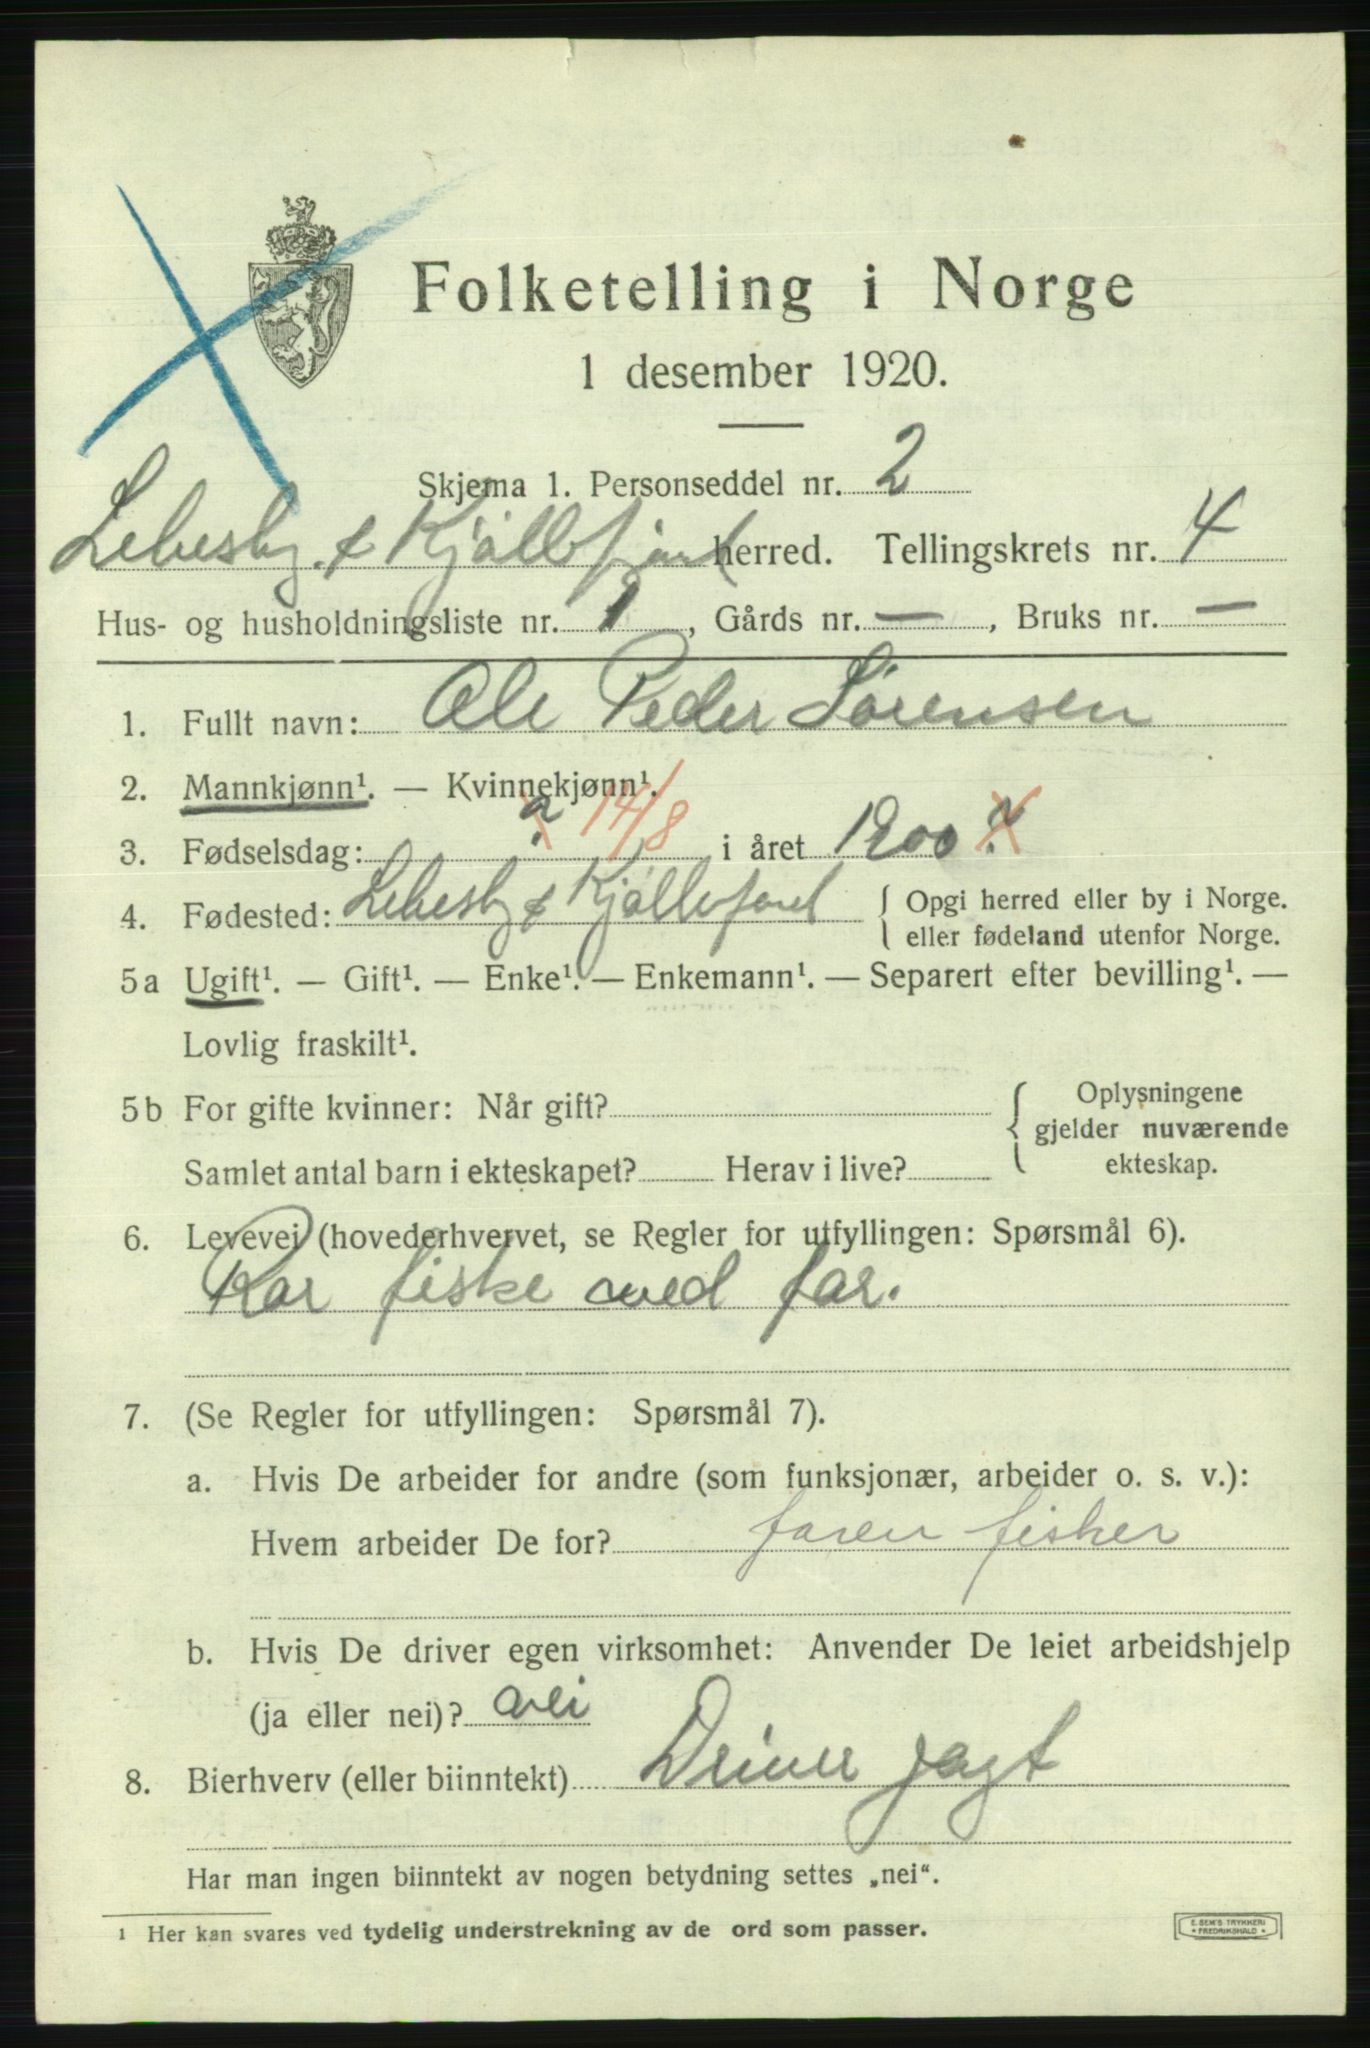 Folketelling i Norge
1 desember 1920.
Skjema 1. Personseddel nr. 2
Lebesby & Kjøllefjord herred. Tellingskrets nr. 4
Hus- og husholdningsliste nr. 1, Gårds nr. —, Bruks nr. —
1. Fullt navn: Ole Peder Sørensen
2. Mannkjønn¹. — Kvinnekjønn¹.
3. Fødselsdag: ? 14/8 i året 1900 ?
4. Fødested: Lebesby & Kjøllefjord { Opgi herred eller by i Norge.
eller fødeland utenfor Norge.
5a Ugift¹. — Gift¹. — Enke¹. — Enkemann¹. — Separert efter bevilling¹. —
Lovlig fraskilt¹.
5b For gifte kvinner: Når gift? { Oplysningene
gjelder nuværende
Samlet antal barn i ekteskapet? Herav i live? ekteskap.
6. Levevei (hovederhvervet, se Regler for utfyllingen: Spørsmål 6).
Ror fiske med far.
7. (Se Regler for utfyllingen: Spørsmål 7).
a. Hvis De arbeider for andre (som funksjonær, arbeider o. s. v.):
Hvem arbeider De for? faren fisker
b. Hvis De driver egen virksomhet: Anvender De leiet arbeidshjelp
(ja eller nei)? nei
8. Bierhverv (eller biinntekt) Driver jagt
Har man ingen biinntekt av nogen betydning settes „nei“.
¹ Her kan svares ved tydelig understrekning av de ord som passer.
E. SEM'S TRYKKERI
FREDRIKSHALD